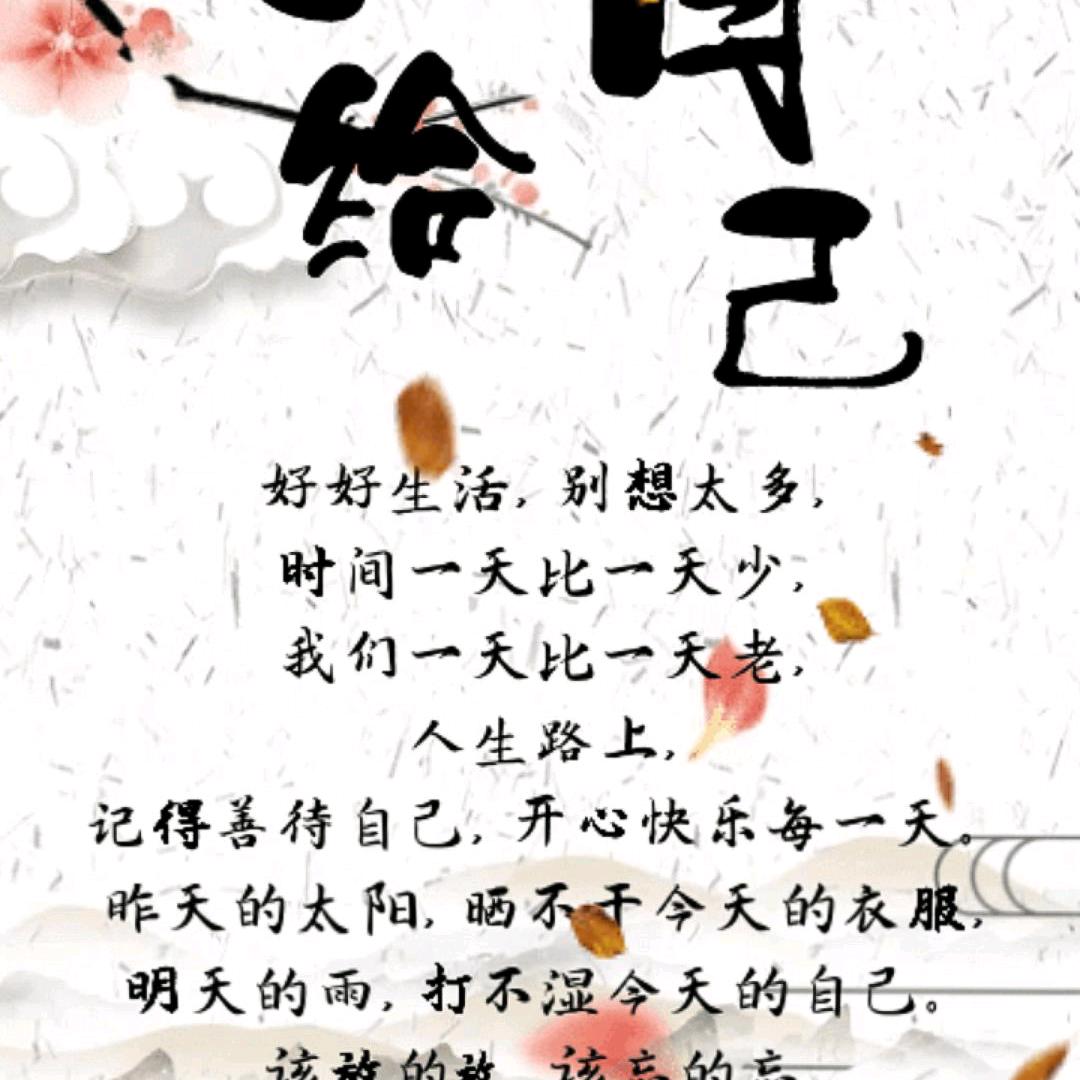 给
己
好好生活，别想太多，
时间一天比一天少，
我们一天比一天老，
人生路上，
记得善待自己，开心快乐每一天。
昨天的太阳，晒不干今天的衣服，
明天的雨，打不湿今天的自己。
该放的放，该忘的忘